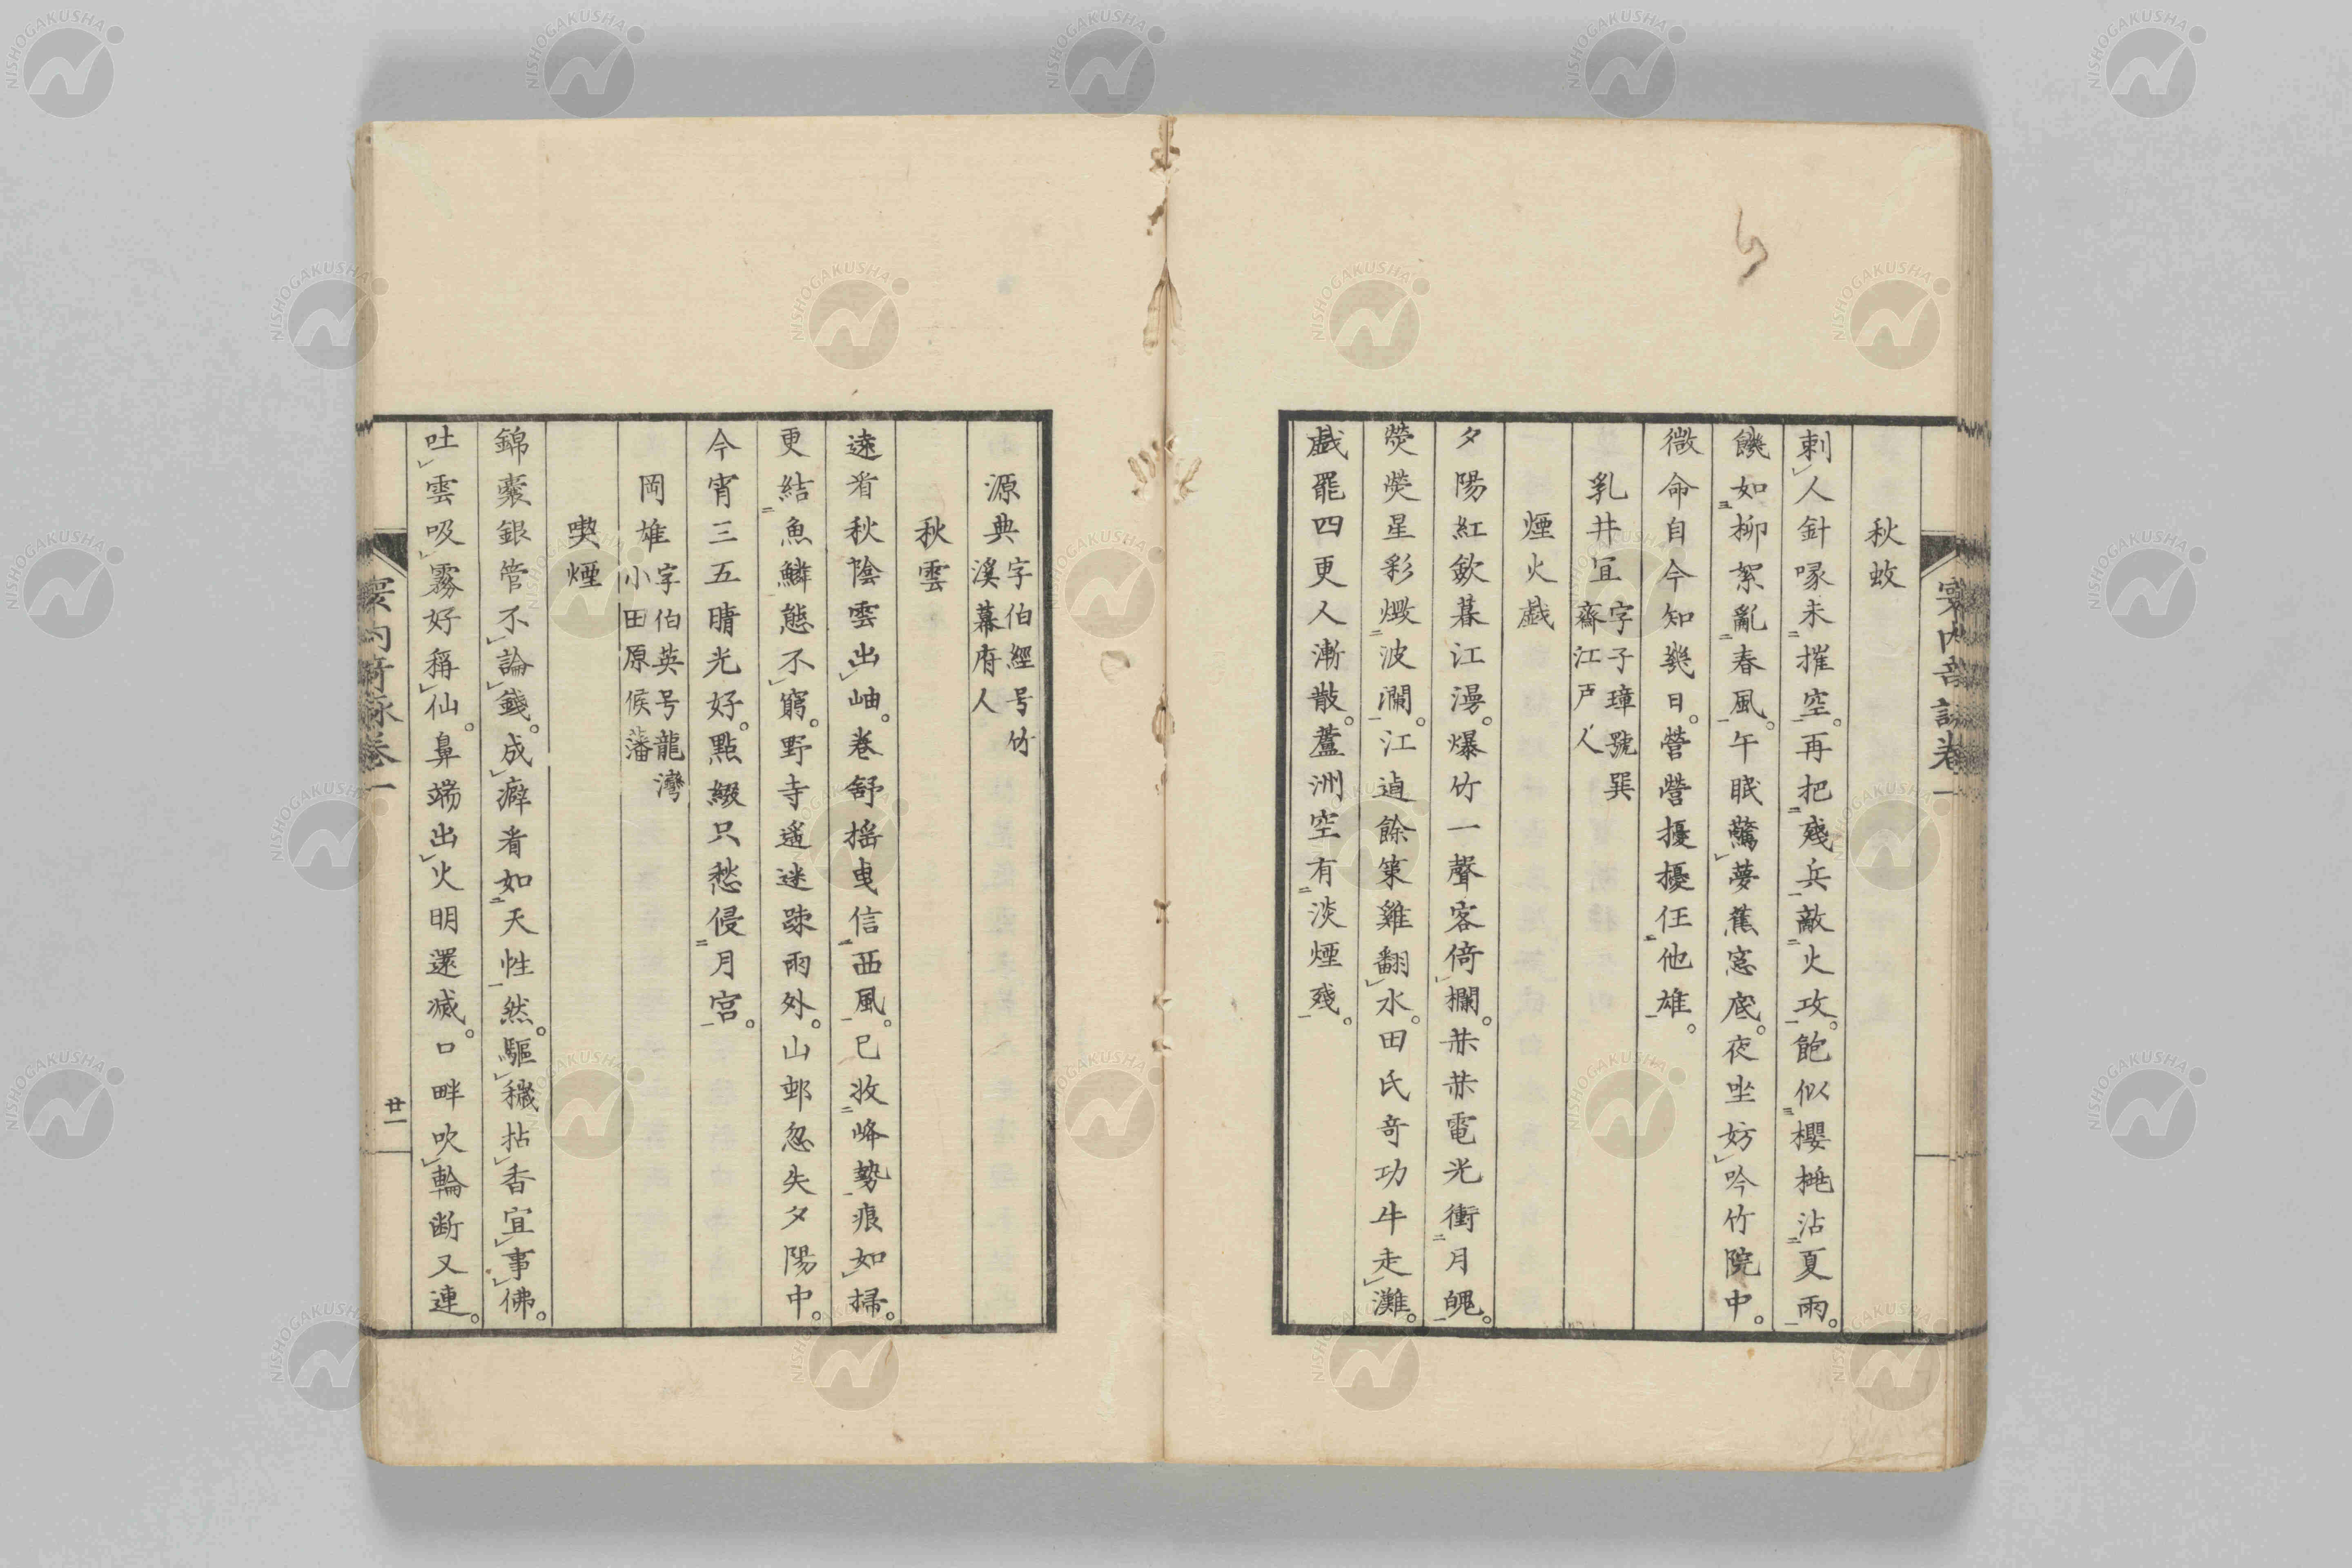 秋蚊
刺人針喙未摧空。再把殘兵敵火攻。飽似櫻桃沾夏雨。
饑如柳絮亂春風。午眠驚夢蕉窓底。夜坐妨吟竹院中。
微命自今知幾日。營營擾擾任他雄。
乳井宜 字子璋號巽
齋江戸人
煙火戯
夕陽紅斂暮江漫。爆竹一聲客倚欄。赫赫電光衝月魄。
熒熒星彩燬波瀾。江逌餘策雞翻水。田氏奇功牛走灘。
戯罷四更人漸散。蘆洲空有淡煙殘。
源典 字伯經号竹
溪幕府人
秋雲
遠看秋陰雲出岫。卷舒揺曳信西風。已收峰勢痕如掃。
更結魚鱗態不窮。野寺遥迷疎雨外。山邨忽失夕陽中。
今宵三五晴光好。點綴只愁侵月宮。
岡雄 字伯英号龍灣
小田原候藩
喫煙
錦嚢銀管不論錢。成癖看如天性然。驅穢拈香宜事佛。
吐雲吸霧好稱仙。鼻端出火明還滅。口畔吹輪断又連。
寰内奇詠卷一
廿一
NISHOGAKUSHA